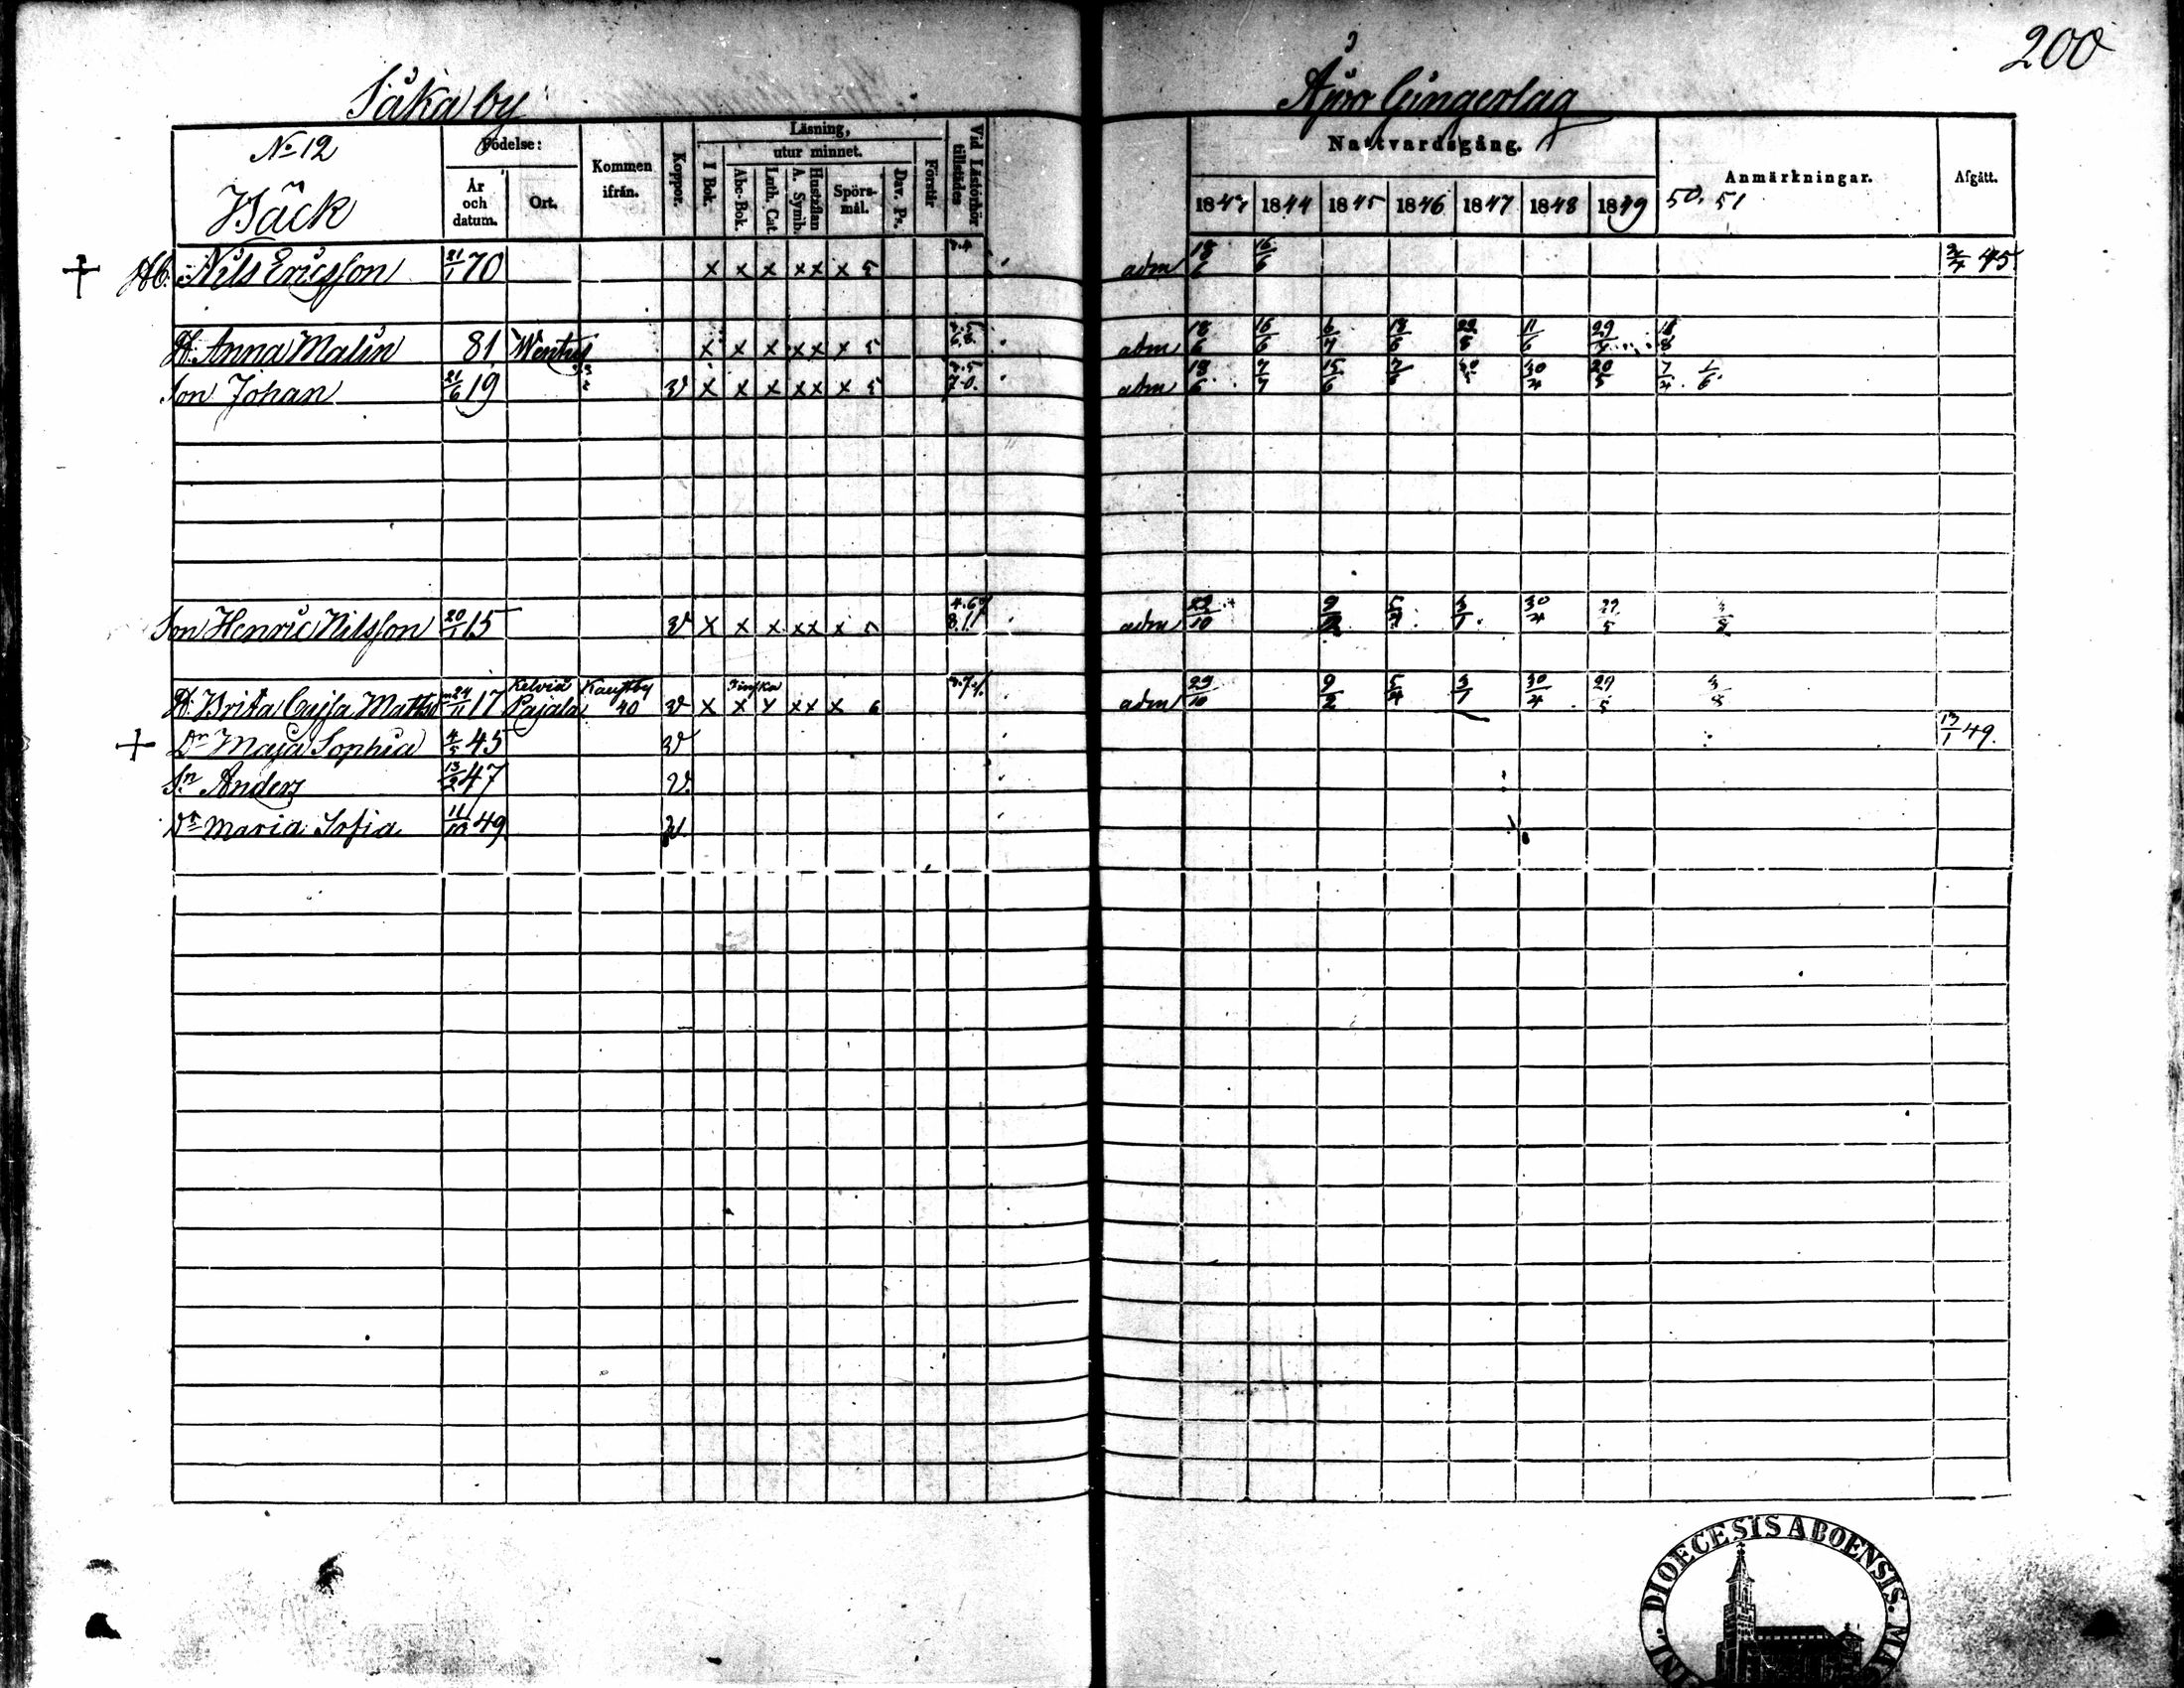 200
Såka by
Åjvo Gingerlag
No 12
Bäck
Födelse:
År och datum.
Ort.
Kommen ifrån.
Koppor.
Läsning,
I Bok.
utur minnet.
Abc-Bok.
Luth. Cat.
Hustaflan A. Symb.
Spörs-mål.
Dav. Ps.
Förstår
Vid Läsförhör tillstädes
Nattvardsgång.
1843 1844 1845 1846 1847 1848 1849 50. 51
Anmärkningar.
Afgått.
Nils Ericsson 21/1 70 x x x x x x 5 adm 18/6 16/6 2/4 45
H. Anna Malin 81 x x x x x x 5 adm 18/6 16/6 6/7 11/6 29/7
Son Johan 21/6 19 v x x x x x x 5 adm 18/6 7/7 15/6 30/4 20/5 7/4
Son Henric Nilsson 20/1 15 v x x x x x x 5 adm 29/10 9/2 5/4 3/1 30/4 29/5 4/8
H. Brita Cajsa Mattsd 24/11 17 Kelviä Pajala Kaustby 40 v x Finska x x x x x 6 adm 29/10 9/2 5/4 3/1 30/4 29/5 4/8
Dr Maja Sophia 4/5 45 v 13/1 49.
Sn Anders 13/2 47 v.
Dr Maria Sofia 11/10 49 v.
DIOECESIS ABOENSIS.